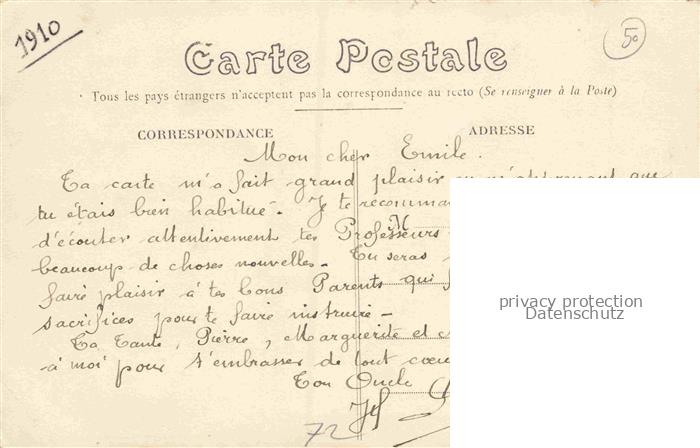 1910
50
Carte Postale
Tous les pays étrangers n'acceptent pas la correspondance au recto (Se renseigner à la Poste)
CORRESPONDANCE
ADRESSE
Mon cher Emile.
Ta carte m'a fait grand plaisir en m'apprenant que
tu étais bien habitué. Je te recomman
M
d'écouter attentivement tes Professeurs
beaucoup de choses nouvelles. Tu seras
faire plaisir à tes bons Parents qui
sacrifices pour te faire instruire —
Ta Tante, Pierre, Marguerite et
à moi pour t'embrasser de tout cœur
Ton Oncle
72
privacy protection
Datenschutz